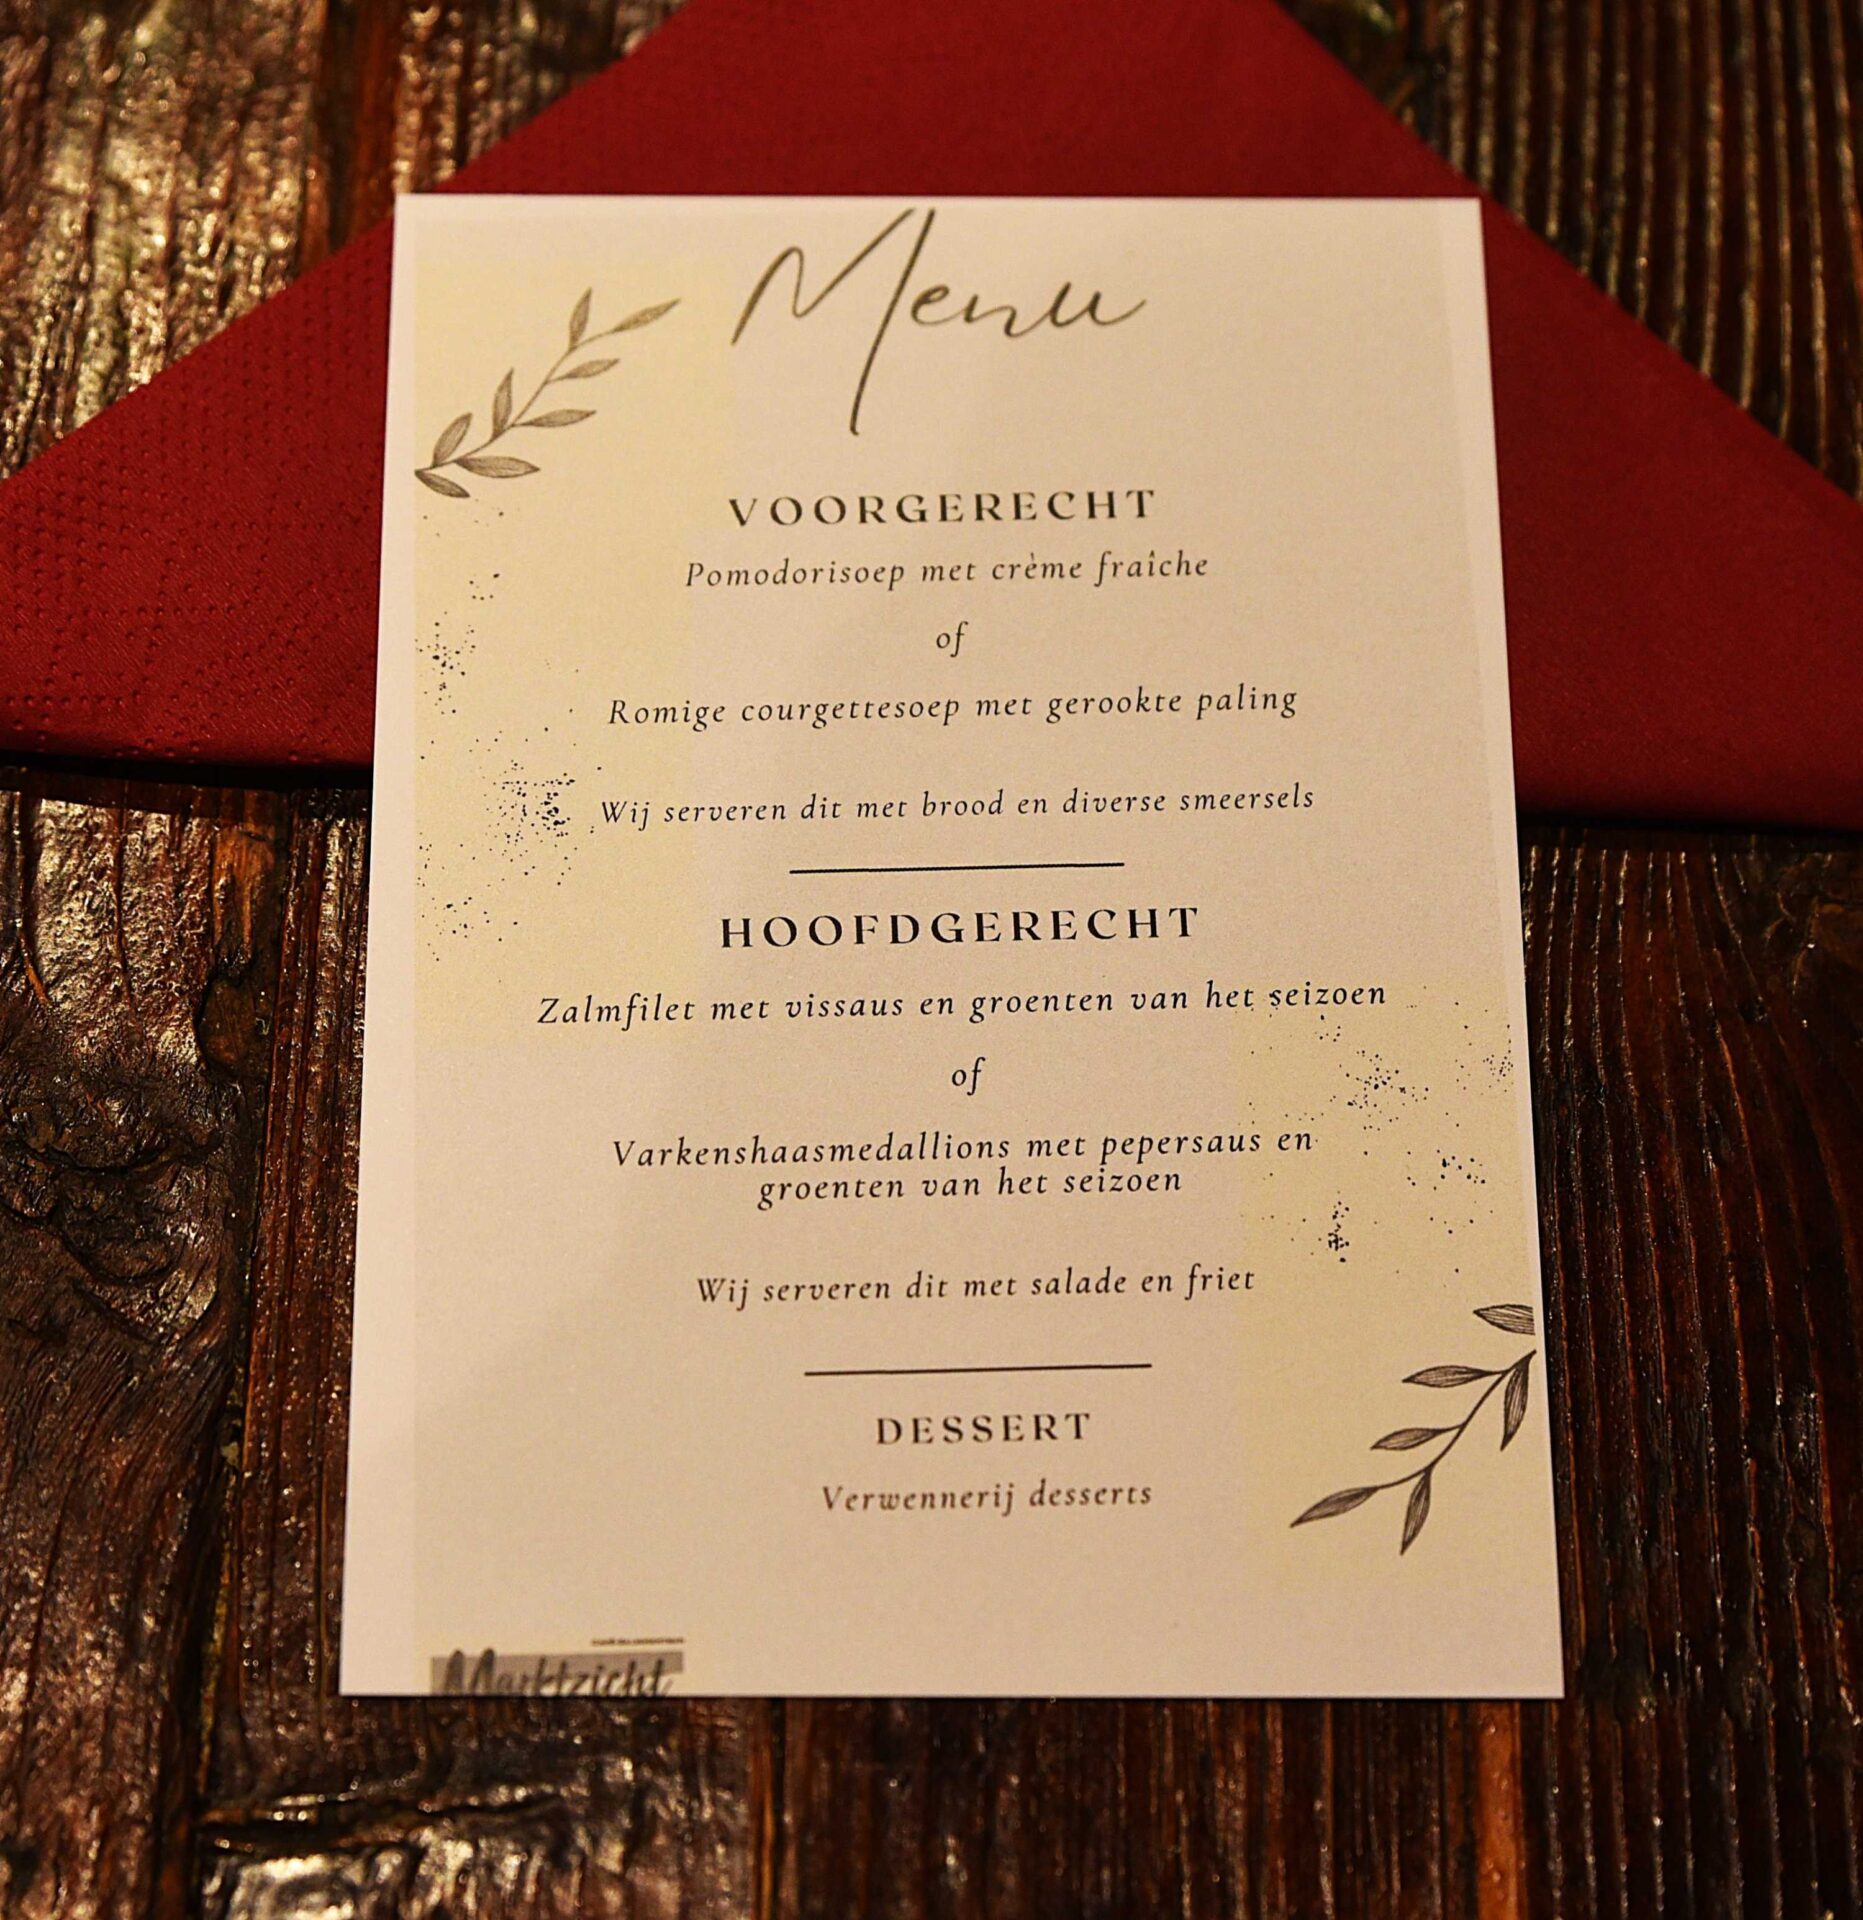 Menu
VOORGERECHT
Pomodorisoep met crème fraîche
of
Romige courgettesoep met gerookte paling
Wij serveren dit met brood en diverse smeersels
HOOFDGERECHT
Zalmfilet met vissaus en groenten van het seizoen
of
Varkenshaasmedallions met pepersaus en
groenten van het seizoen
Wij serveren dit met salade en friet
DESSERT
Verwennerij desserts
Marktzicht